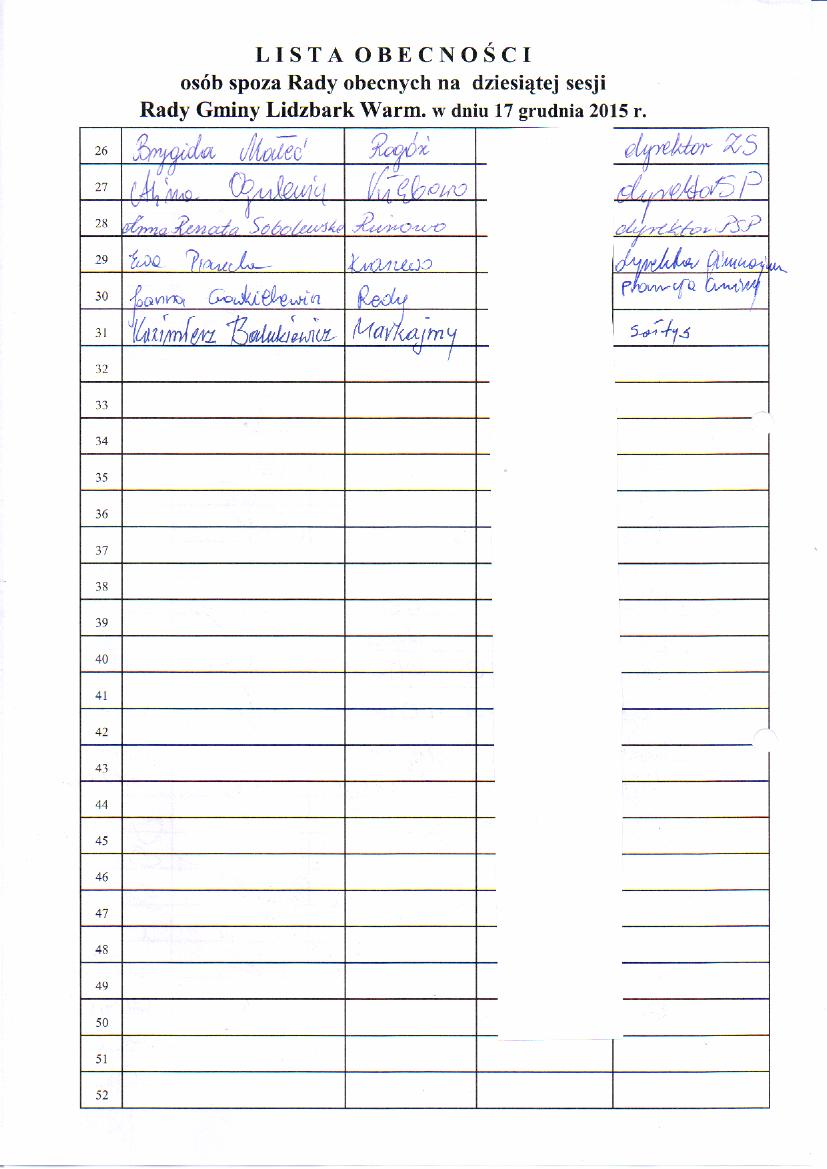 L I S T A O B E C N O Ś C I
osób spoza Rady obecnych na dziesiątej sesji
Rady Gminy Lidzbark Warm. w dniu 17 grudnia 2015 r.
26 Brygida Małeć Rogóż dyrektor ZS
27 Alina dyrektor SP
28 Anna Renata Sobolewska Runowo dyrektor PSP
29 Ewa Kraszewo dyrektor
30 Joanna Redy Gminy
31 Kazimierz Bałukiewicz Markajmy sołtys
32
33
34
35
36
37
38
39
40
41
42
43
44
45
46
47
48
49
50
51
52